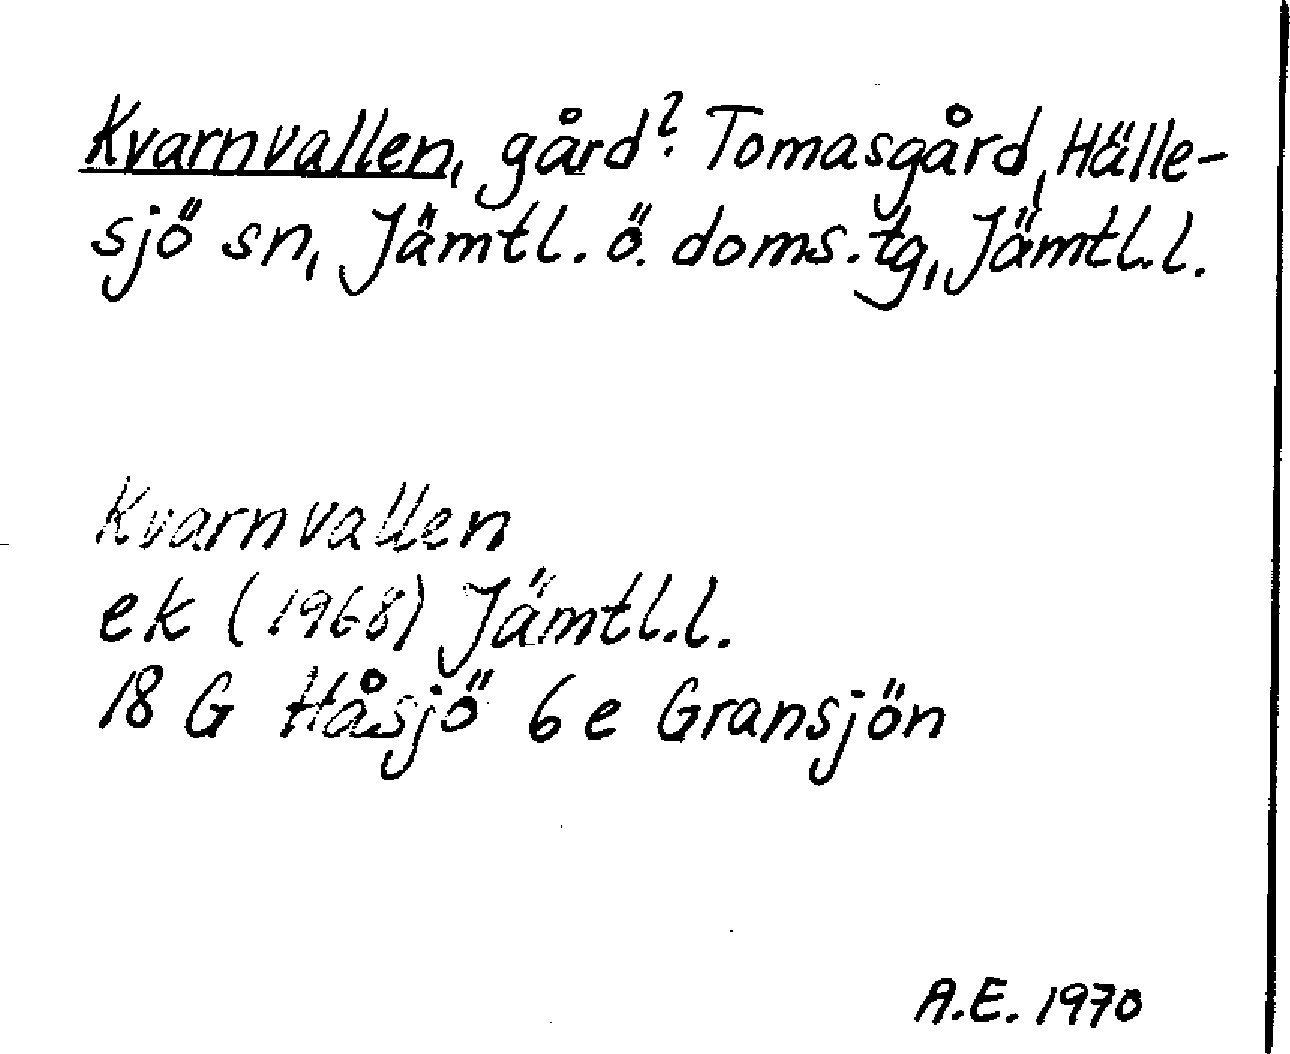 Kvarnvallen, gård? Tomasgård, Hälle-
sjö sn, Jämtl. ö. doms.tg, Jämtl.l.
Kvarnvallen
ek (1968) Jämtl.l.
18 G Håsjö 6 e Gransjön
A.E. 1970